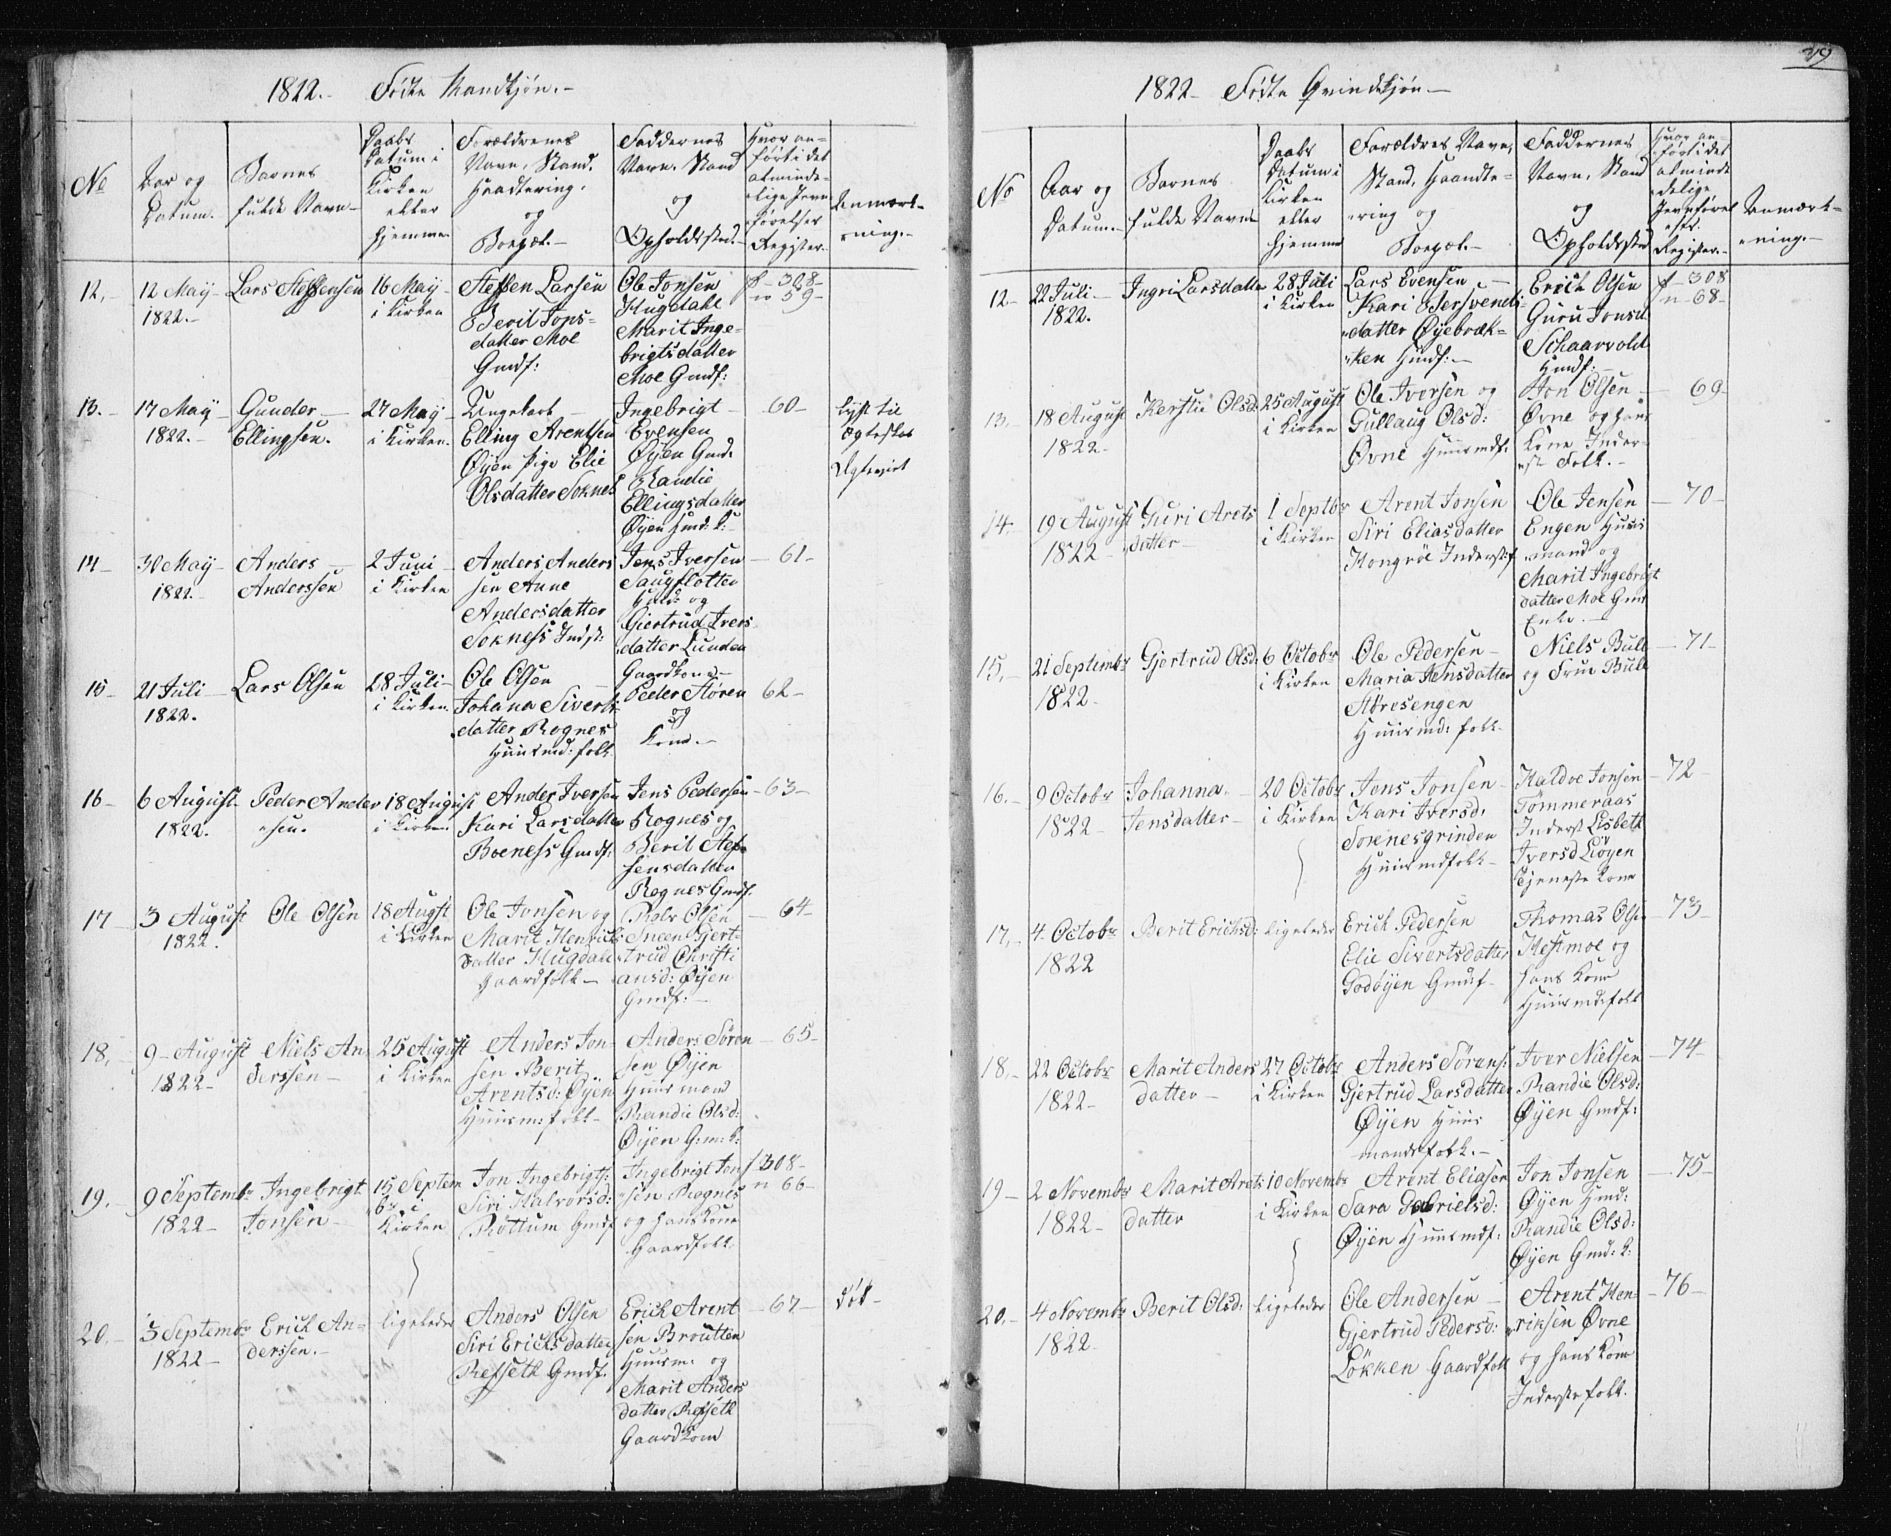 1822. Fødte Mandkjøn.-
No
Aar og
Datum.
Barnets
fulde Navn-
Daabs
Datum i
Kirken
eller
hjemme
Forældrenes
Navn, Stand,
Haandtering,
og
Boepæl.-
Faddernes
Navn, Stand
og
Opholdssted.-
Hvor an-
ført i det
alminde-
lige Jevn-
førelses
Register-
Anmærk-
ning.-
12,-
12 May-
1822.-
Lars Steffensen
16 May-
i Kirken
Steffen Larsen
Berit Jons-
datter Moe
Gmdf:
Ole Jonsen
Hugdahl
Marit Inge-
brigtsdatter
Moe Gmdf:
f - 308-
n 59-
13.-
17 May-
1822.-
Gunder-
Ellingsen.
27 May-
i Kirken.
Ungekarl-
Elling Arentsen
Øyen Pige Elie
Olsdatter Soknes
Ingebrigt-
Evensen
Øyen Gmd.
Randie
Ellingsdatter
Øyen Gmd: k:
-60-
lyst til
Ægteskab
14-
30 May-
1822.-
Anders-
Anderssen
2 Juni-
i Kirken
Anders Anders
sen Anne
Andersdatter
Sokness Indst:
Jens Iversen
Saugflotten
og
Giertrud Ivers
datter Lunden
Gaardkone-
-61-
15-
21 Juli-
1822.
Lars Olsen
28 Juli-
i Kirken.
Ole Olsen-
Johana Siverts
datter Rognes
Huusmd: folk
Peder Støren
og
Kone.-
62-
16-
6 August-
1822.
Peder Ander
sen.
18 August
i Kirken.
Ander Iversen
Kari Larsdatter
Boeness Gmdf:
Jens Pedersen
Rognes og
Berit Stef-
fensdatter
Rognes Gmdf.
-63-
17-
3 August
1822.
Ole Olsen
18 Augst
i Kirken
Ole Jonsen og
Marit Henrichs
datter Hugdan
Gaardfolk-
Rolv Olsen
Sneen Gjert-
trud Christi
ansd: Øyen
Gmdf:-
-64-
18,-
9-August
1822-
Niels An
derssen-
25 August
i Kirken
Anders Jon-
sen Berit
Arentsd: Øyen
Huusm: folk-
Anders Søren
sen Øyen
Huusmand
Randie Olsd:
Øyen G:m: k:
-65-
19.-
9 Septembr
1822-
Ingebrigt
Jonsen-
15 Septem
br i
Kirken
Jon Ingebrigts:
Siri Halvorsd:
Røttum Gmdf
Ingebrigt Jon
sen Rognes
og hans Kone
Gaardfolk.
f 308-
n 66-
20.-
5 Septembr
1822-
Erich An-
derssen.-
ligeleder
Anders Olsen
Siri Erichsdatter
Refseth Gmdf.
Erich Arent
sen Broutten
Huusm. og
Marit Anders
datter Refseth
Gaardkone
-67-
død-
1822- Fødte Qvindekjøn-
39
No
Aar og
Datum.-
Barnes
fulde Navn
Daabs
Datum i
Kirken
eller
hjemme
Forældres Navn,
Stand, Haandte-
ring og
Boepæl.-
Faddernes
Navn, Stand
og
Opholdssted
Hvor an-
ført i det
alminde
lige
Jevnførel
ses
Register.-
Anmærk-
ning.-
12-
22 Juli-
1822.
Ingri Larsdatter
28 Juli
i Kirken
Lars Evensen-
Kari Sersvends
datter Øyebræk-
ken Hmdf:-
Erich Olsen
Guru Jonsd
Schaarvold
Hmdf:-
f - 308
n 68-
13.-
18 August
1822-
Kerstie Olsd:
25 August
i Kirken
Ole Iversen og
Gullaug Olsd:
Øvne Huusmdf:
Jon Olsen-
Øvne og hans
Kone Inder-
ste Folk.-
69-
14-
19 August
1822-
Guri Arets
datter-
1 Septbr
i Kirken
Arent Jonsen
Siri Eliasdatter
Kongrøe Inderstf
Ole Jensen
Engen Huus
mand og
Marit Ingebrigt
datter Moe Gmd
Enke.-
-70-
15,-
21 Septembr
1822-
Gjertrud Olsd:
6 Octobr
i Kirken
Ole Pedersen-
Maria Hensdatter
Størosengen
Huusmd: folk-
Niels Bull
og Frue Bull
-71-
16.-
9 Octobr
1822-
Johanna.-
Jensdatter-
20 Octobr
i Kirken
Jens Jonsen-
Kari Iversd:
Soknesgrinden
Huusmdfolk-
Haldoe Jonsen
Tommeraas
Inderst Lisbeth
Iversd Liøyen
Tjeneste Kone
-72-
17,-
4 Octobr
1822
Berit Erichsd:
ligeleder
Erick Pedersen
Elie Sivertsdatter
Godøyen Gmdf-
Thomas Olsen
Hestmoe og
hans Kone
Huusmdfolk
-73-
18,-
22 Octobr
1822-
Marit Anders
datter-
27 Octobr
i Kirken
Anders Sørens:
Gjertrud Larsdatter
Øyen Huus
mandsfolk.-
Iver Nielsen
Randie Olsd:
Øyen Gmdf:
-74-
19-
2 Novembr
1822-
Marit Arets
datter
10 Novembr
i Kirken
Arent Eliasen
Sara Gabrielsd:
Øyen Huusmdf:
Jon Jonsen
Øyen Hmd:
Randie Olsd:
Øyen Gmd: k:
-75-
20.-
4 Novembr
1822-
Berit Olsd:
ligeleder
Ole Andersen-
Gjertrud Pedersd:
Løkken Gaardfolk
Arent Hen
riksen Øvne
og hans Kone
Inderstefolk.
-76-